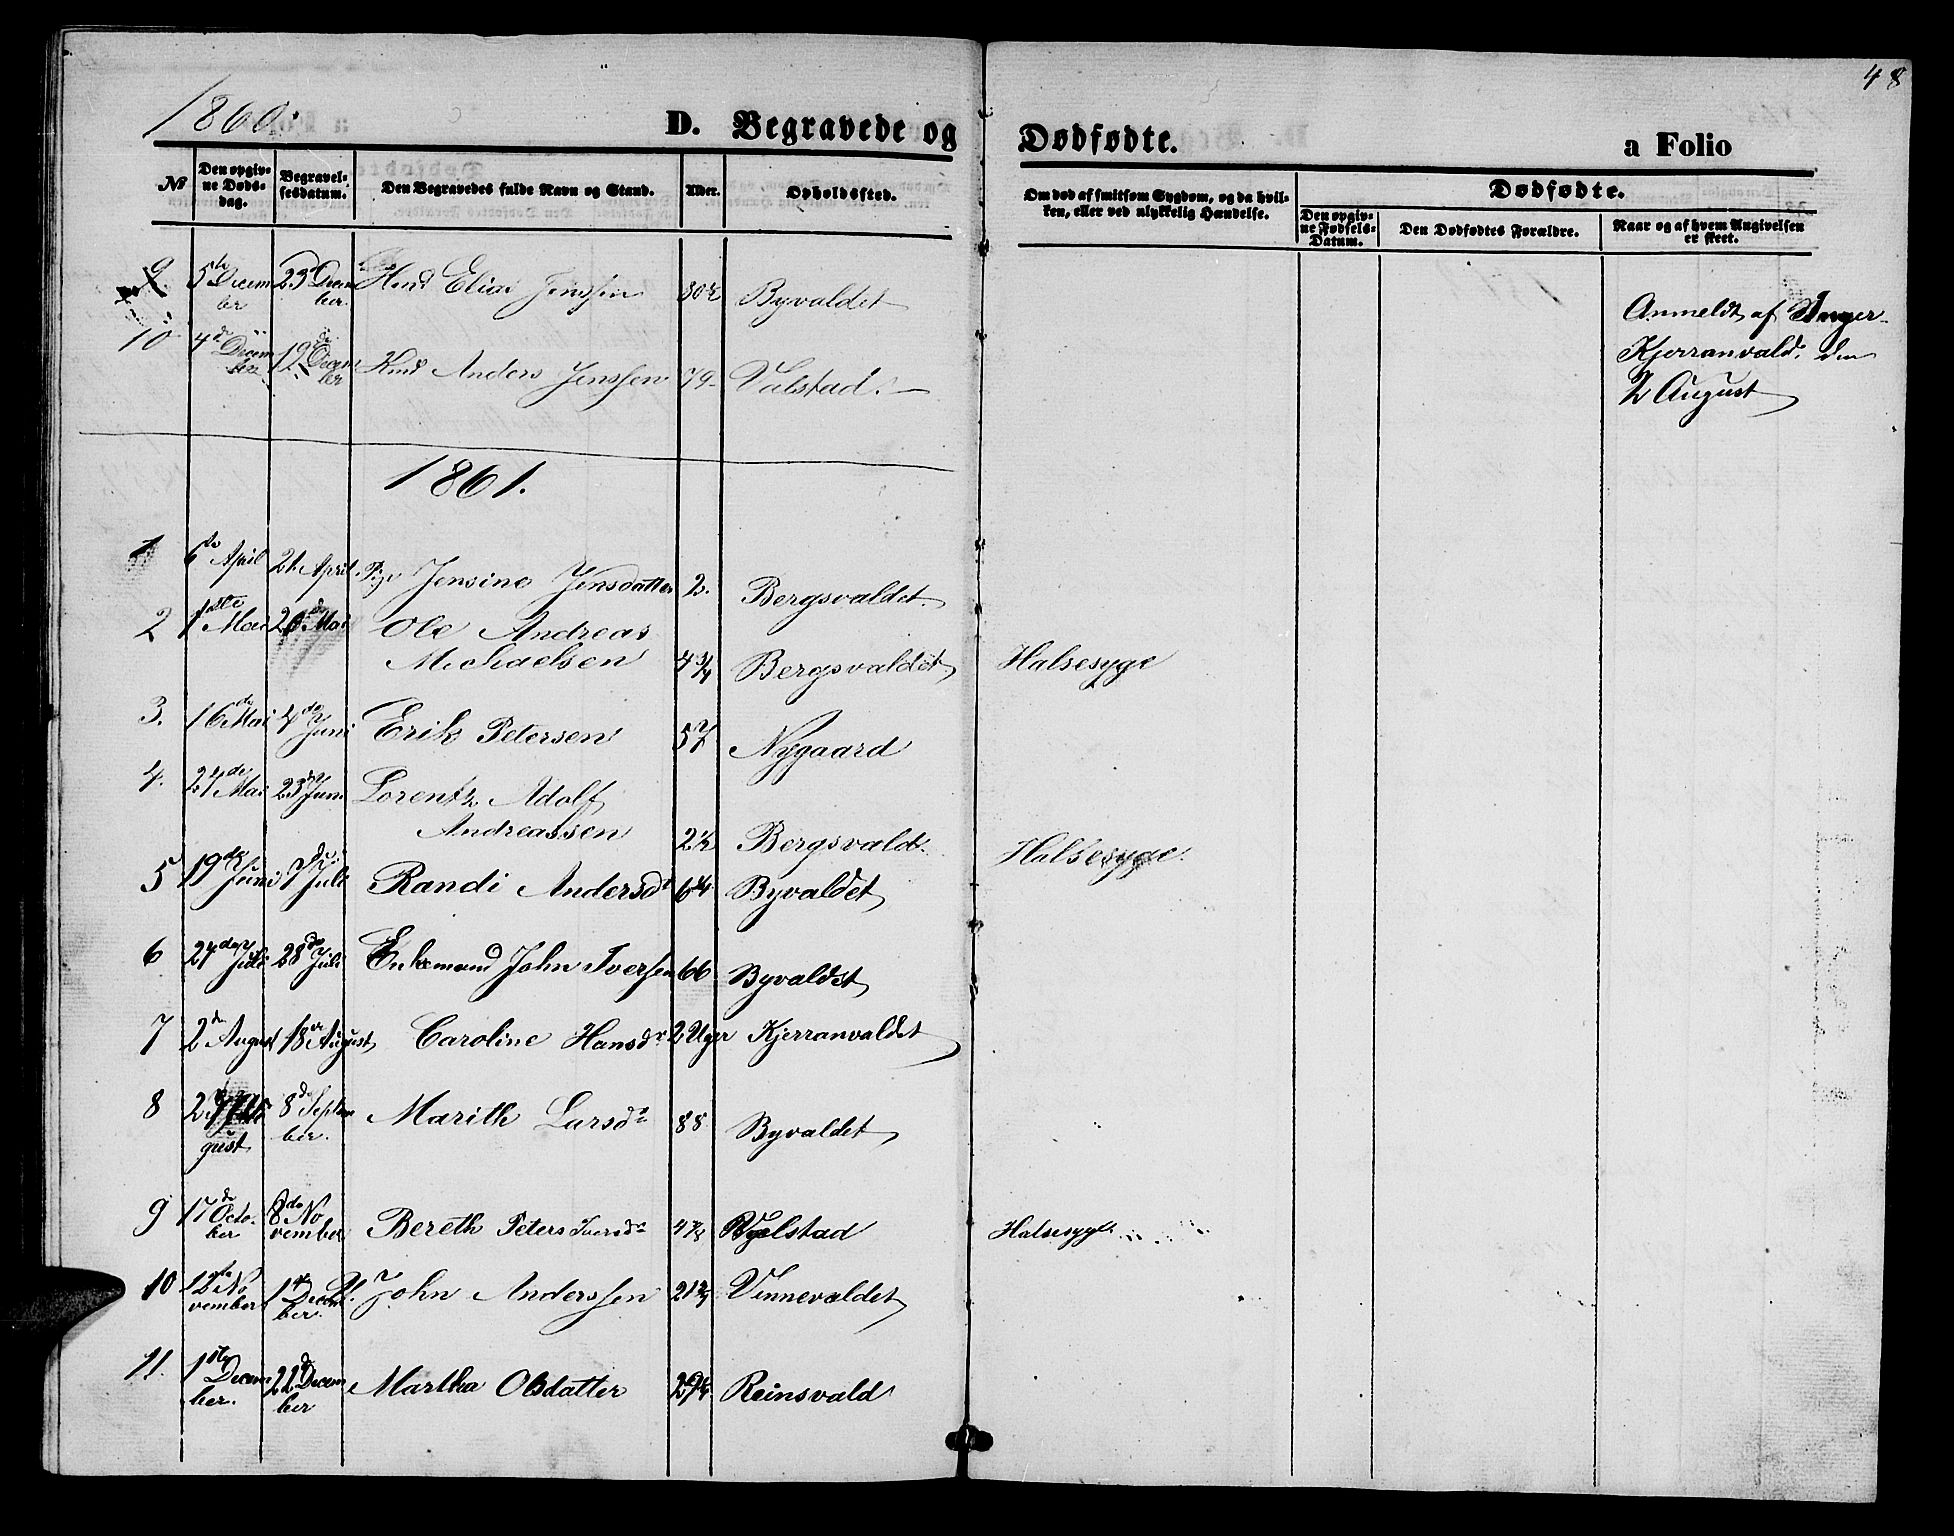 48
1860.
D. Begravede og Dødfødte.
a Folio
No
Den opgivne Døds-dag.
Begravelsesdatum.
Den Begravedes fulde Navn og Stand.
Alder.
Opholdssted.
Om død af smitsom Sygdom, og da hvilken, eller ved ulykkelig Hændelse.
Dødfødte.
Den opgivne Fødsels-Datum.
Den Dødfødtes Forældre.
Naar og af hvem Angivelsen er skeet.
9. 5te December 23 December Elias Jenssen 30 Byvaldet
10 4de December 19de December Anders Jenssen 79 Valstad.
Anmeldt af
Kjerranvald. den
2 August
1861.
1 6te April 21. April. Pige Jensine Jensdatter 2. Bergsvaldet.
2 1ste Mai 20de Mai Ole Andreas
Michaelsen 4 3/4 Bergsvaldet Halsesyge
3. 16de Mai 4de Juni Erik Petersen 57 Nygaard
4. 27de Mai 23de Juni Lorentz Adolf
Andreassen 2 1/2 Bergsvald. Halsesyge.
5 19de Juni 7de Juli Randi Andersdr 64 Byvaldet
6 27de Juli 28de Juli Enkemand John Iversen 66 Byvaldet
7 2de August 18de August Caroline Hansdr 2 Uger Kjerranvaldet
8 gust 8de September Marith Larsdr 88 Byvaldet
9 17de October 8de November Bereth Peters Iversdr 4 Valstad Halsesyge
10 12te November 1ste December John Anderssen 21 Vinnevaldet
11. 1ste December 22de December Martha Olsdatter Reinsvald